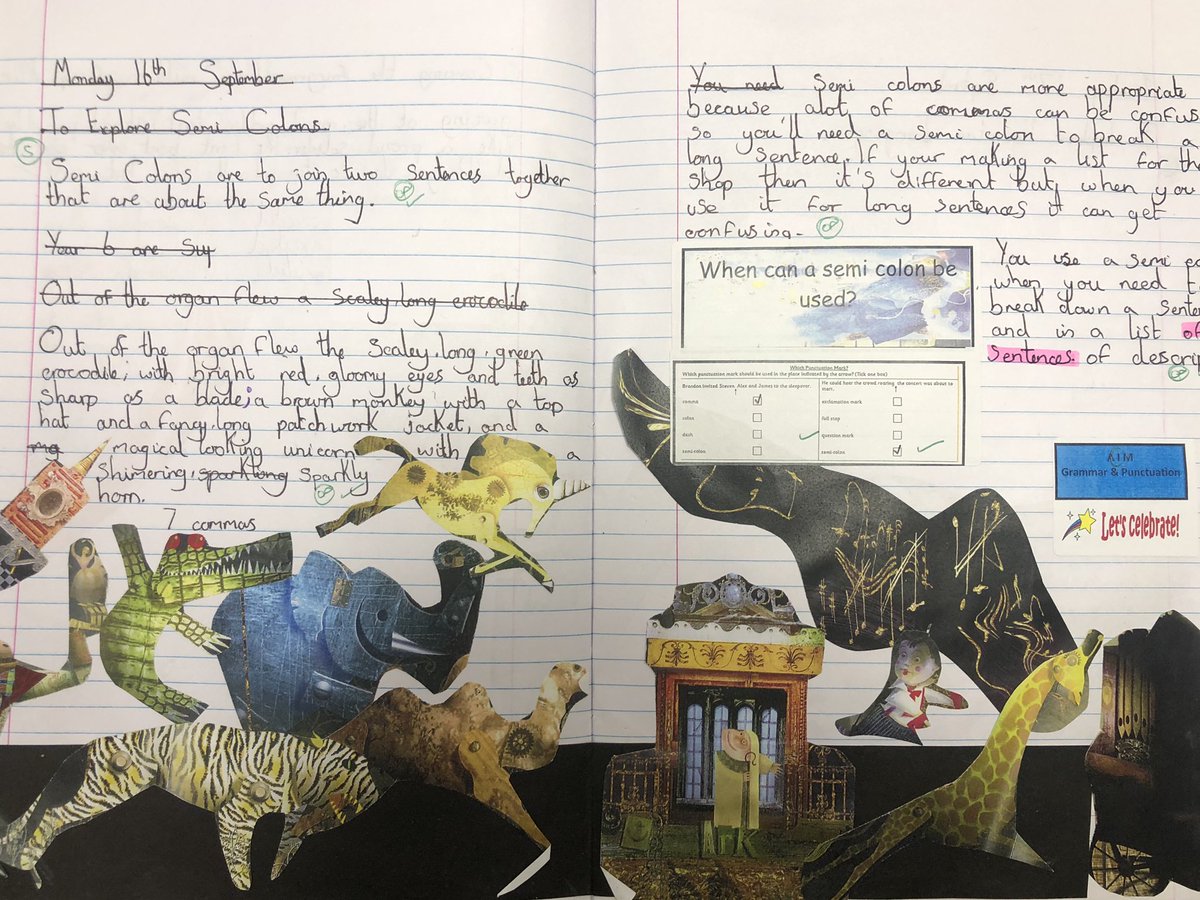 Monday 16th September
To Explore Semi Colons.
S
Semi Colons are to join two sentences together
that are about the same thing.
Year 6 are
Out of the organ flew a scaley, long crocodile
Out of the organ flew the scaley, long, green
crocodile; with bright red, gloomy eyes and teeth as
sharp as a blade; a brown monkey with a top
hat and a fancy, long patchwork jacket, and a
magical looking unicorn with a
shimering, sparklong sparkly
horn.
7 commas
You need Semi colons are more appropriate
because alot of commas can be confus
so you'll need a semi colon to break a
long sentence. If your making a list for the
shop then it's different but, when you
use it for long sentences it can get
confusing.
When can a semi colon be
used?
You use a semi co
when you need to
break down a senten
and in a list of
sentences. of descrip
Which Punctuation Mark?
Which punctuation mark should be used in the place indicated by the arrow? (Tick one box)
Brandon invited Steven, Alex and James to the sleepover.
comma
colon
dash
semi-colon
He could hear the crowd roaring the concert was about to
start.
exclamation mark
full stop
question mark
semi-colon
AIM
Grammar & Punctuation
Let's Celebrate!